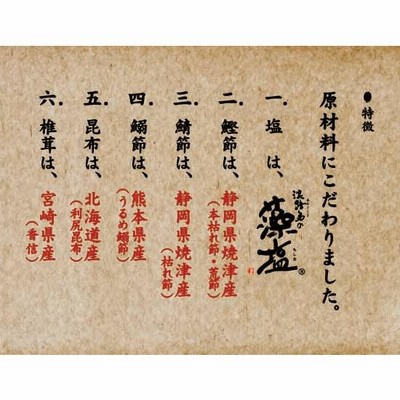 ●特徴
原材料にこだわりました。
一.塩は、
淡路島の
藻塩®
二.鰹節は、静岡県焼津産
(本枯れ節・荒節)
三.鯖節は、静岡県焼津産
(枯れ節)
四.鰯節は、熊本県産
(うるめ鰯節)
五.昆布は、北海道産
(利尻昆布)
六.椎茸は、宮崎県産
(香信)